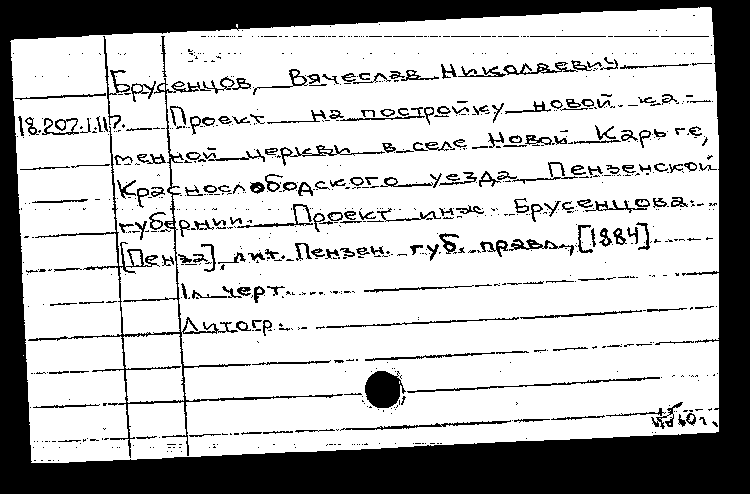 Брусенцов, Вячеслав Николаевич
18.207.1.117. Проект на постройку новой ка-
менной церкви в селе Новой Карьге,
Краснослободского уезда, Пензенской
губернии. Проект инж. Брусенцова.
[Пенза], лит. Пензен. губ. правл., [1884].
1 л. черт.
Литогр.
60 г.